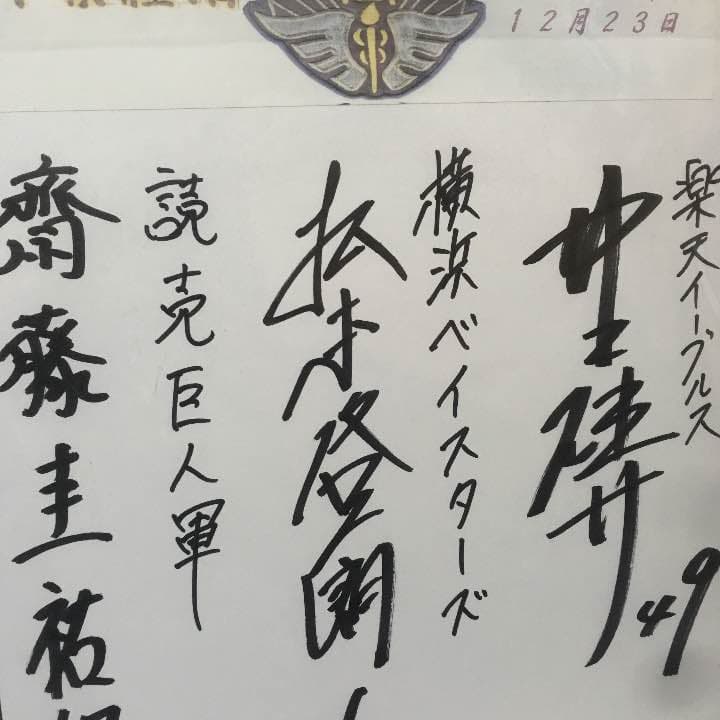 12月23日
楽天イーグルス
井上雄介 49
横浜ベイスターズ
松本啓二朗
読売巨人軍
齋藤圭祐